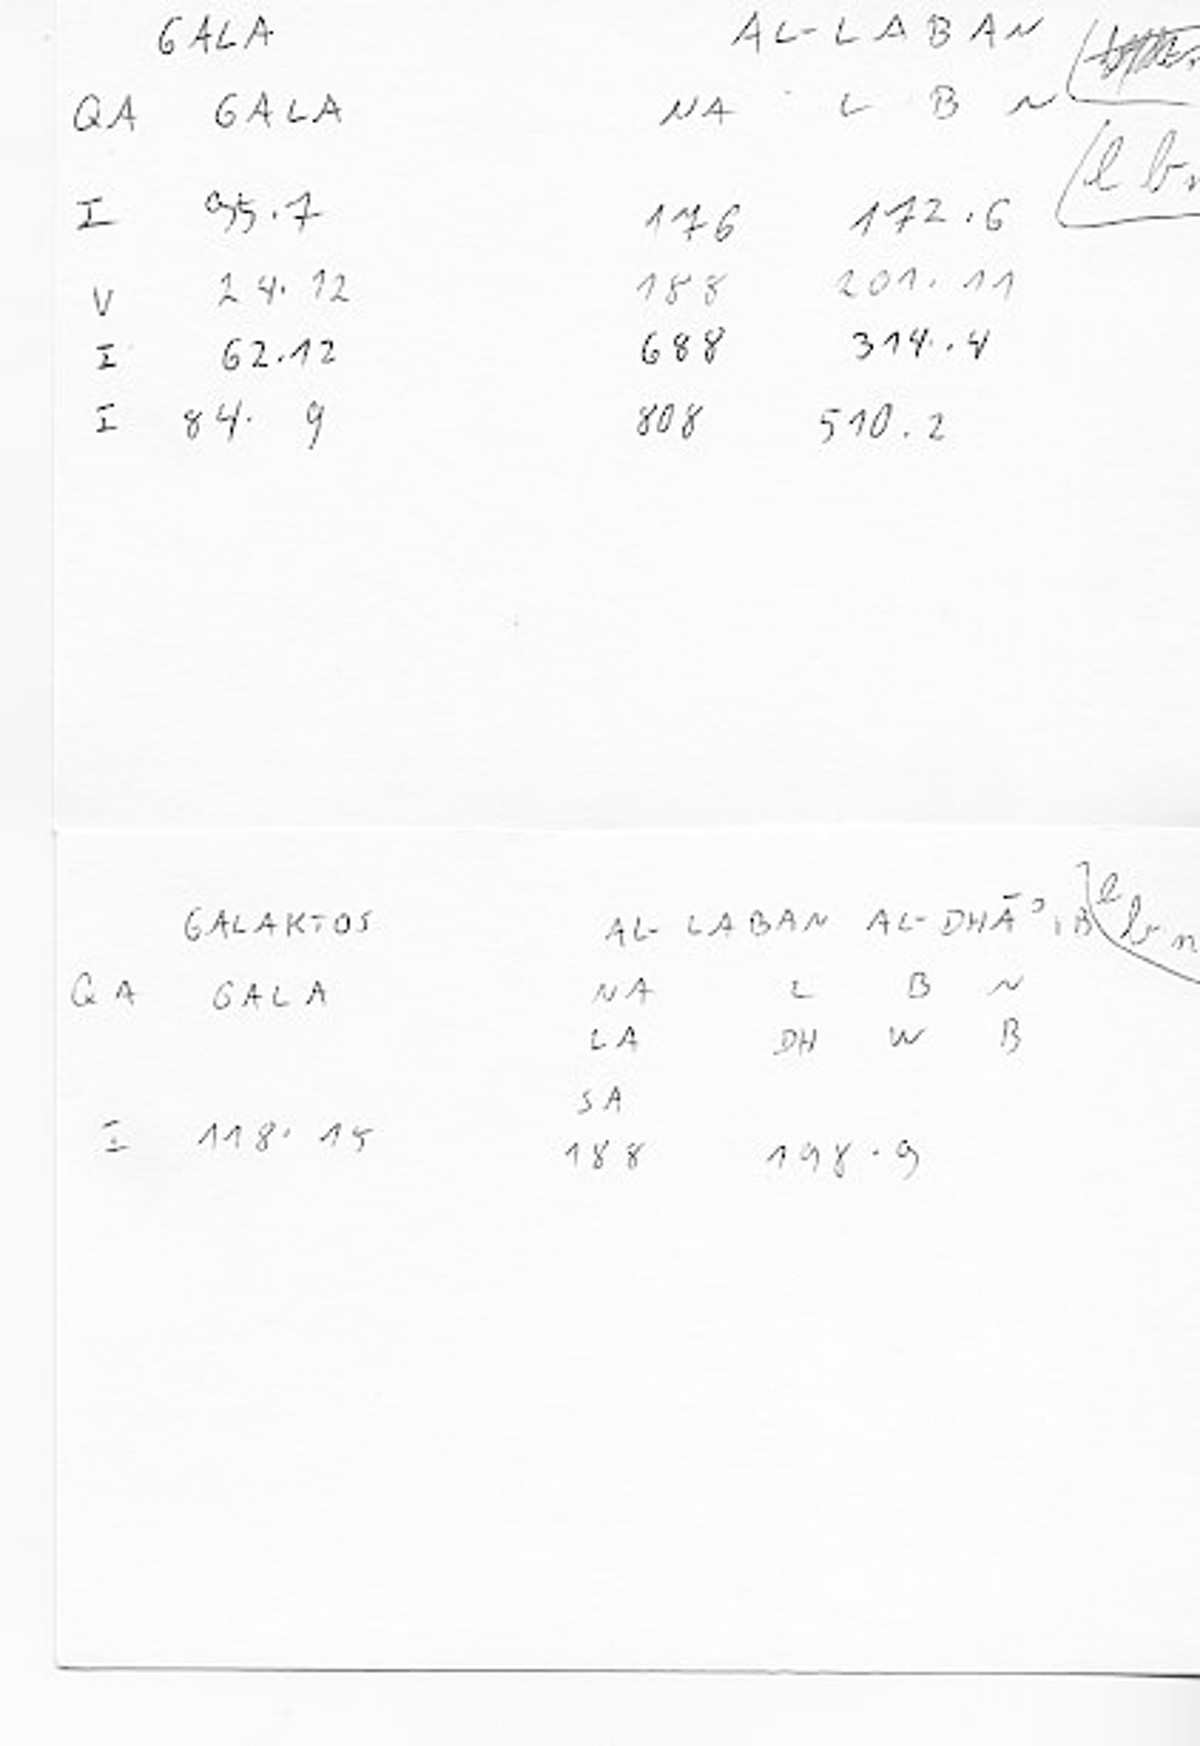 GALA AL-LABAN
QA GALA NA L B N
(l b n
I 95.7 176 172.6
V 24.12 188 201.11
I 62.12 688 314.4
I 84. 9 808 510.2
GALAKTOS AL-LABAN AL-DHĀʾIB
l b n
QA GALA NA L B N
LA DH W B
SA
I 118.15 188 198.9